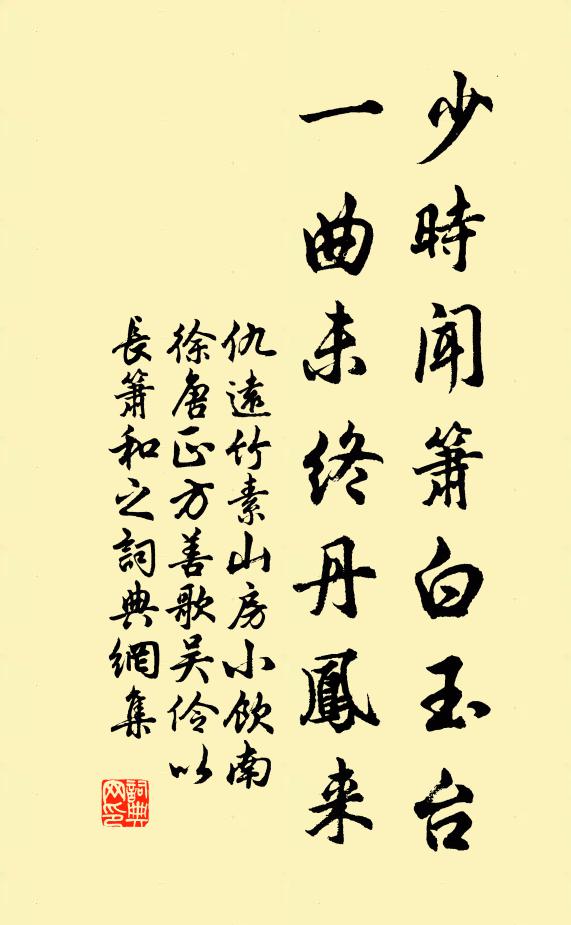 少時聞簫白玉台
一曲未終丹鳳来
仇遠竹素山房小飲南
徐唐正方善歌吴伶以
長簫和之詞典網集
詞典
网印